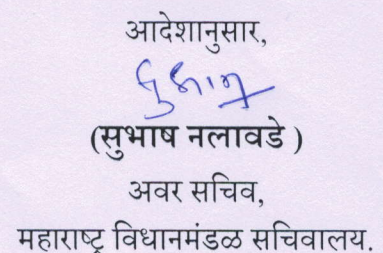 आदेशानुसार,
(सुभाष नलावडे )
अवर सचिव,
महाराष्ट्र विधानमंडळ सचिवालय.